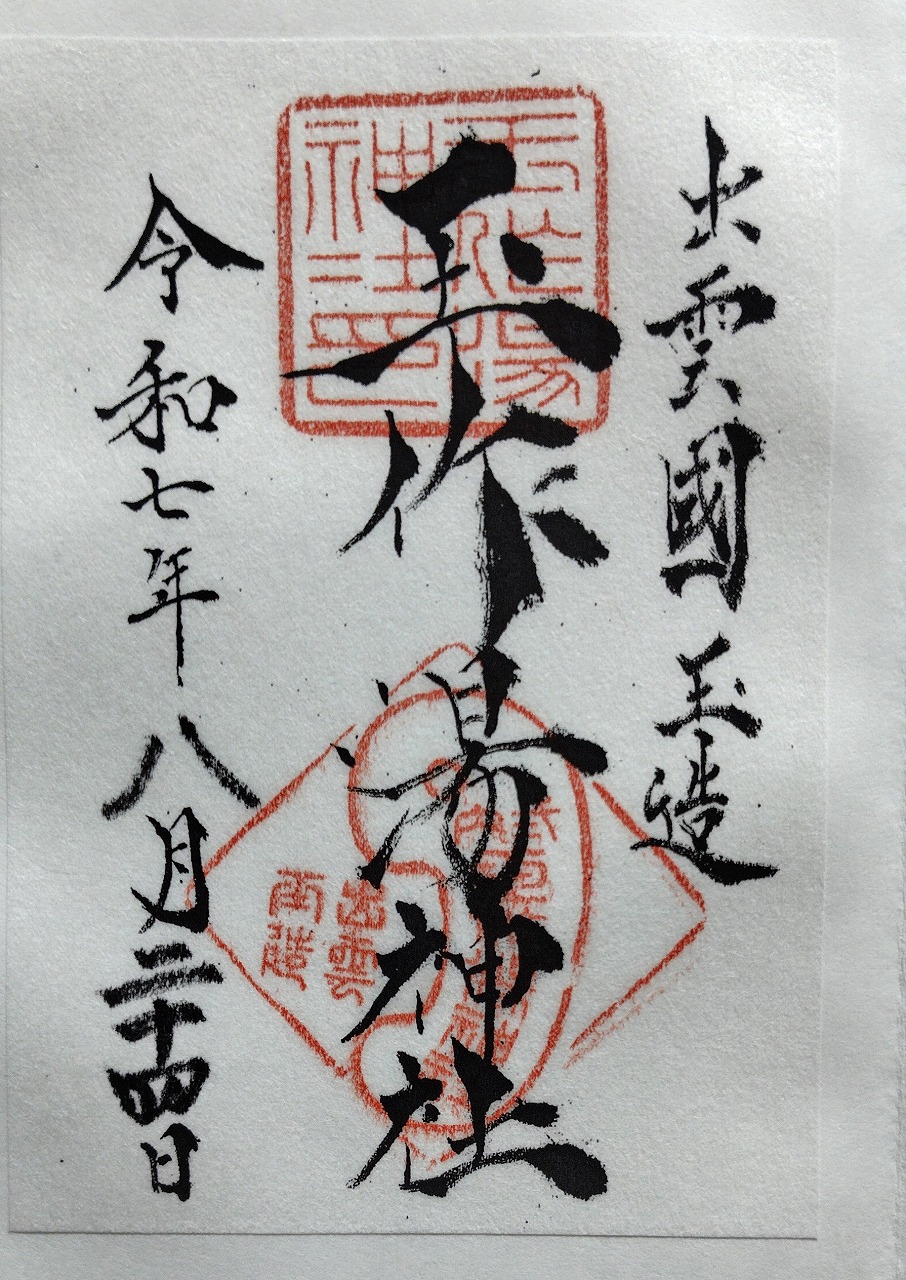 出雲國玉造
玉作湯神社
令和七年八月二十四日
玉造湯
神社印
出雲